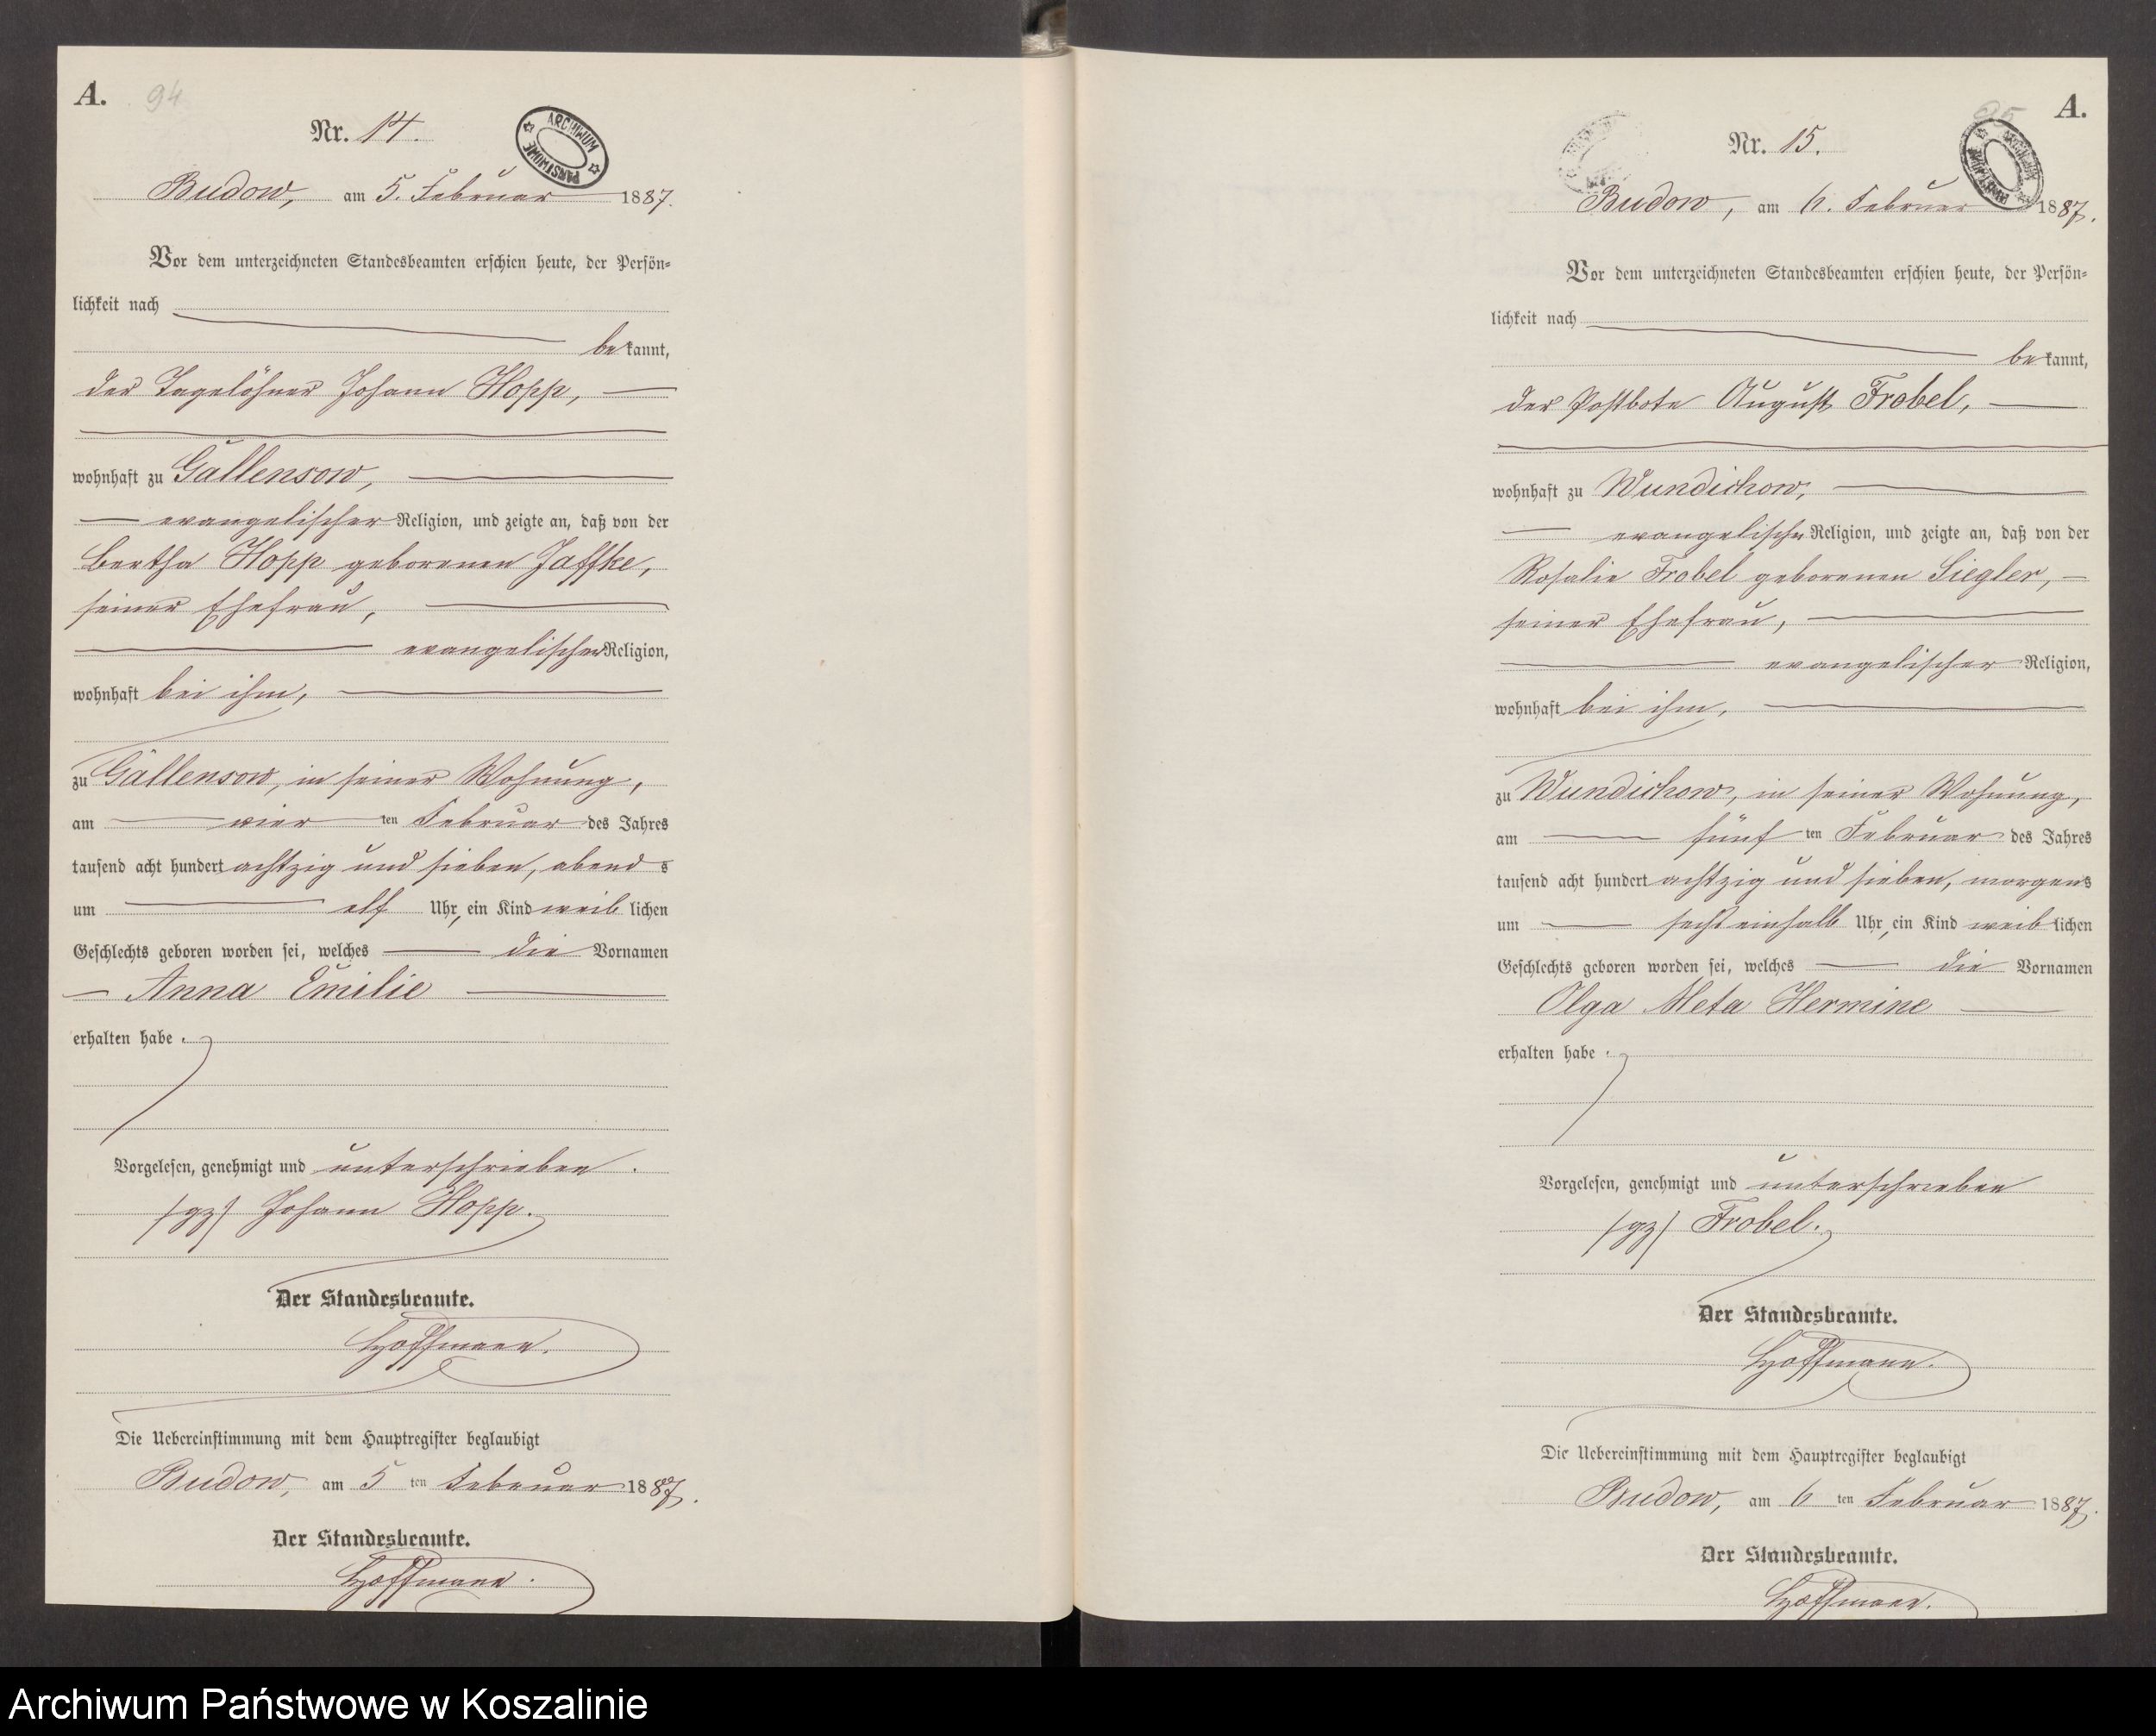 A. 94
Nr. 14.
ARCHIWUM PAŃSTWOWE
Budow, am 5. Februar 1887.
Vor dem unterzeichneten Standesbeamten erschien heute, der Persön-
lichkeit nach
bekannt,
der Tagelöhner Johann Hopp,
wohnhaft zu Gallensow,
evangelischer Religion, und zeigte an, daß von der
Bertha Hopp geborenen Jaffke,
seiner Ehefrau,
evangelischer Religion,
wohnhaft bei ihm,
zu Gallensow, in seiner Wohnung,
am vier ten Februar des Jahres
tausend acht hundert achtzig und sieben, abends
um elf Uhr, ein Kind weiblichen
Geschlechts geboren worden sei, welches die Vornamen
Anna Emilie
erhalten habe.
Vorgelesen, genehmigt und unterschrieben.
(gz) Johann Hopp.
Der Standesbeamte.
Hoffmann.
Die Uebereinstimmung mit dem Hauptregister beglaubigt
Budow, am 5 ten Februar 1887.
Der Standesbeamte.
Hoffmann.
95 A.
Nr. 15.
ARCHIWUM PAŃSTWOWE
Budow, am 6. Februar 1887.
Vor dem unterzeichneten Standesbeamten erschien heute, der Persön-
lichkeit nach
bekannt,
der Postbote August Frobel,
wohnhaft zu Wundichow,
evangelischer Religion, und zeigte an, daß von der
Rosalie Frobel geborenen Siegler,
seiner Ehefrau,
evangelischer Religion,
wohnhaft bei ihm,
zu Wundichow, in seiner Wohnung,
am fünf ten Februar des Jahres
tausend acht hundert achtzig und sieben, morgens
um sechseinhalb Uhr, ein Kind weiblichen
Geschlechts geboren worden sei, welches die Vornamen
Olga Meta Hermine
erhalten habe.
Vorgelesen, genehmigt und unterschrieben
(gz) Frobel.
Der Standesbeamte.
Hoffmann.
Die Uebereinstimmung mit dem Hauptregister beglaubigt
Budow, am 6 ten Februar 1887.
Der Standesbeamte.
Hoffmann.
Archiwum Państwowe w Koszalinie